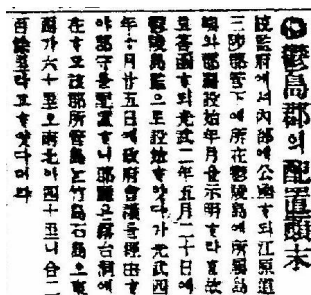 ◉鬱島郡의配置顚末
統監府에셔內部에公函하되江原道
三陟郡管下에所在鬱陵島에所屬島
嶼와郡廳設始年月을示明하라는故
로答函하되光武二年五月二十日에
鬱陵島監으로設始하얏다가光武四
年十月廿五日에政府會議를經由하
야郡守를配置하니郡廳은霧台洞에
在하고該郡所管島는竹島石島오東
西가六十里오南北이四十里니合二
百餘里라고하얏다더라